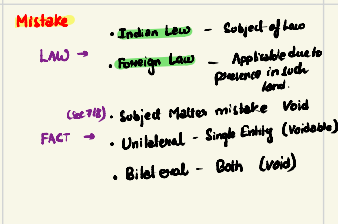 Mistake
LAW → • Indian Law – Subject of Law
• Foreign Law – Applicable due to presence in such land.
(Sec 7/8) • Subject Matter mistake Void
FACT → • Unilateral – Single Entity (Voidable)
• Bilateral – Both (Void)